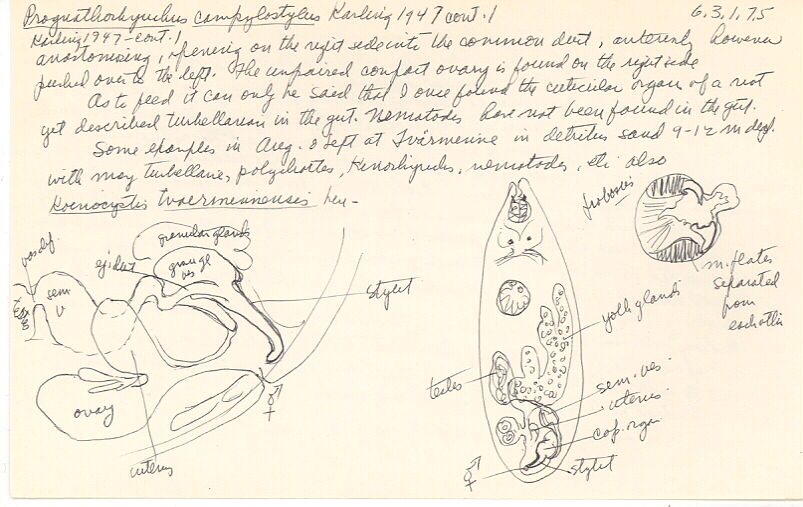 Prognathorhynchus campylostylus Karling 1947 cont.1
6.3.1.75
Karling 1947-cont.1
anastomosing, opening on the right side into the common duct, anteriorly however
pushed over to the left. The unpaired compact ovary is found on the right side
As to feed it can only be said that I once found the cuticular organ of a not
yet described turbellarian in the gut. Nematodes have not been found in the gut.
Some examples in Aug. & Sept at Tvärminne in detritus sand 9-12 m deep.
with many turbellaria, polychaetes, Kinorhynchs, nematodes, etc. also
Koenocystis tvaerminnensis
granular glands
vas def.
ej. duct
gran gl
ves
sem
V
stylet
ovary
uterus
♂
♀
proboscis
m. plates
separated
from
each other
yolk glands
testes
sem. ves.
uterus
cop. organ
stylet
♂
♀